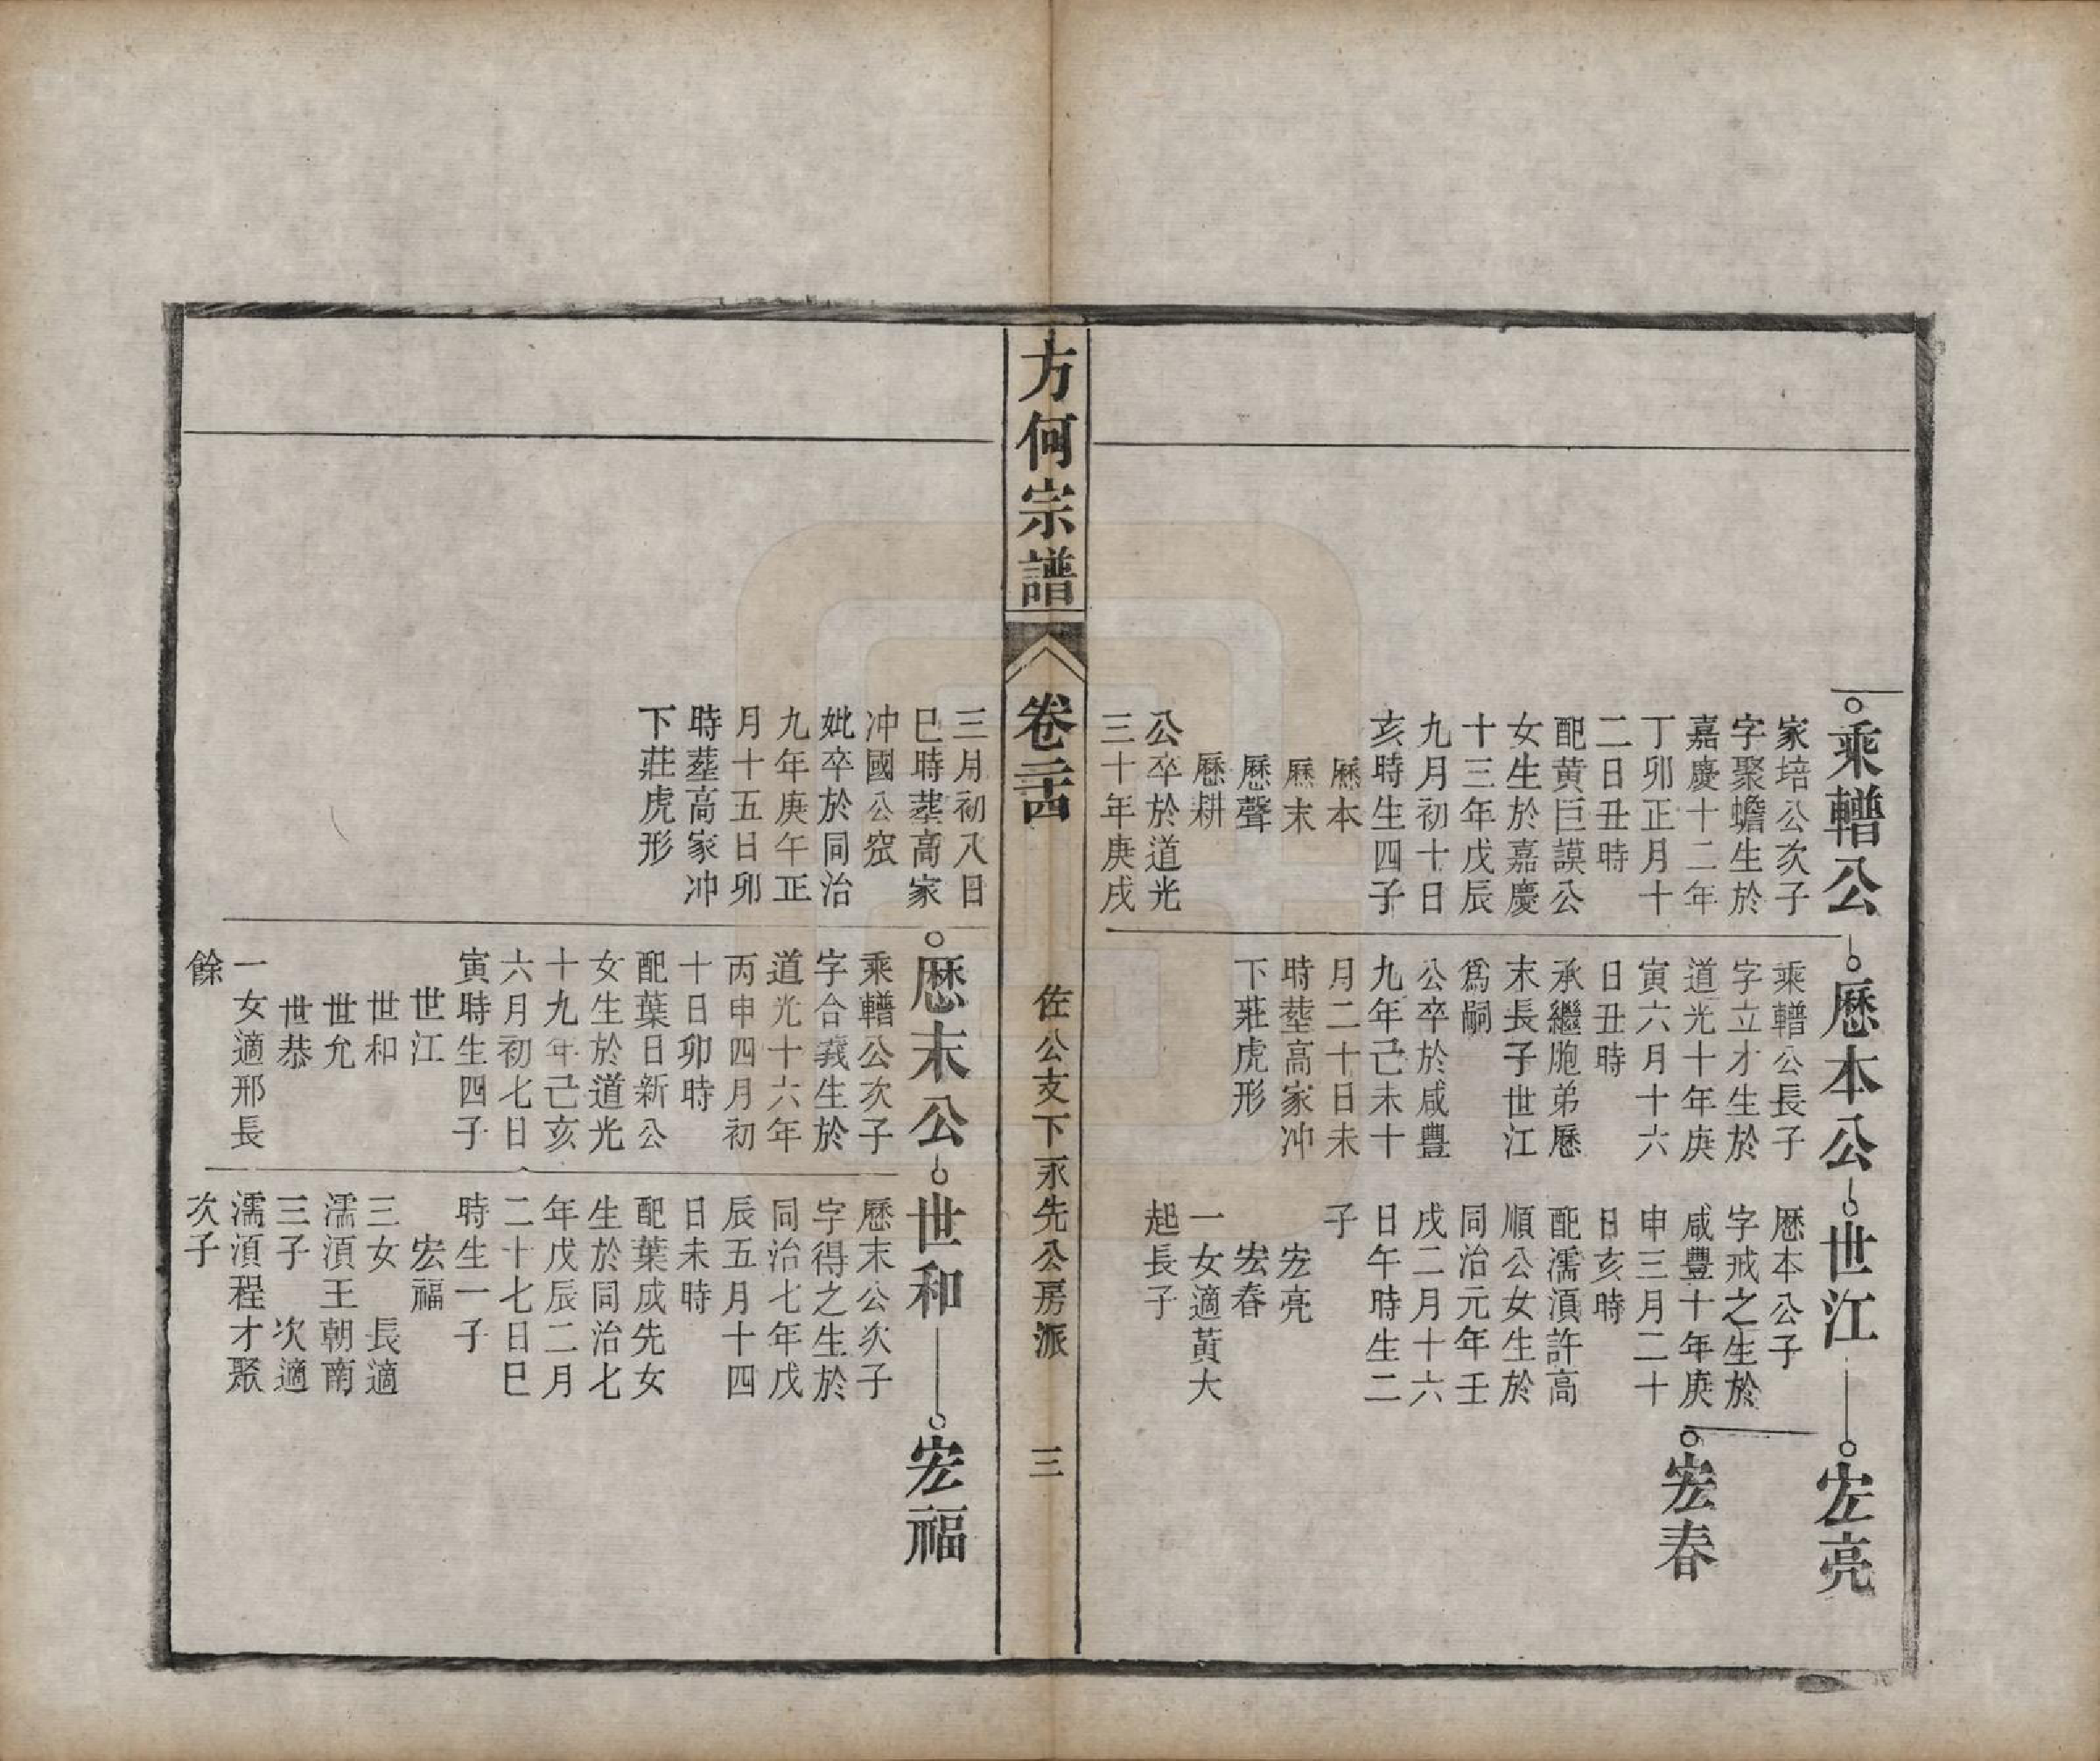 乘轊公
家培公次子
字聚蟾生於
嘉慶十二年
丁卯正月十
二日丑時
配黄巨謨公
女生於嘉慶
十三年戊辰
九月初十日
亥時生四子
厯本
厯末
厯聲
厯耕
公卒於道光
三十年庚戌
厯本公
乘轊公長子
字立才生於
道光十年庚
寅六月十六
日丑時
承繼胞弟厯
末長子世江
爲嗣
公卒於咸豐
九年己未十
月二十日未
時塟高家冲
下莊虎形
世江
厯本公子
字戒之生於
咸豐十年庚
申三月二十
日亥時
配濡湏許高
順公女生於
同治元年壬
戌二月十六
日午時生二
子
宏亮
宏春
一女適黃大
起長子
宏亮
宏春
方何宗譜
卷二十四
佐公支下永先公房派
三
三月初八日
巳時塟高家
冲國公窊
妣卒於同治
九年庚午正
月十五日卯
時塟高家冲
下莊虎形
厯末公
乘轊公次子
字合義生於
道光十六年
丙申四月初
十日卯時
配葉日新公
女生於道光
十九年己亥
六月初七日
寅時生四子
世江
世和
世允
世恭
一女適邢長
餘
世和
厯末公次子
字得之生於
同治七年戊
辰五月十四
日未時
配葉成先女
生於同治七
年戊辰二月
二十七日巳
時生一子
宏福
三女 長適
濡湏王朝南
三子 次適
濡湏程才聚
次子
宏福